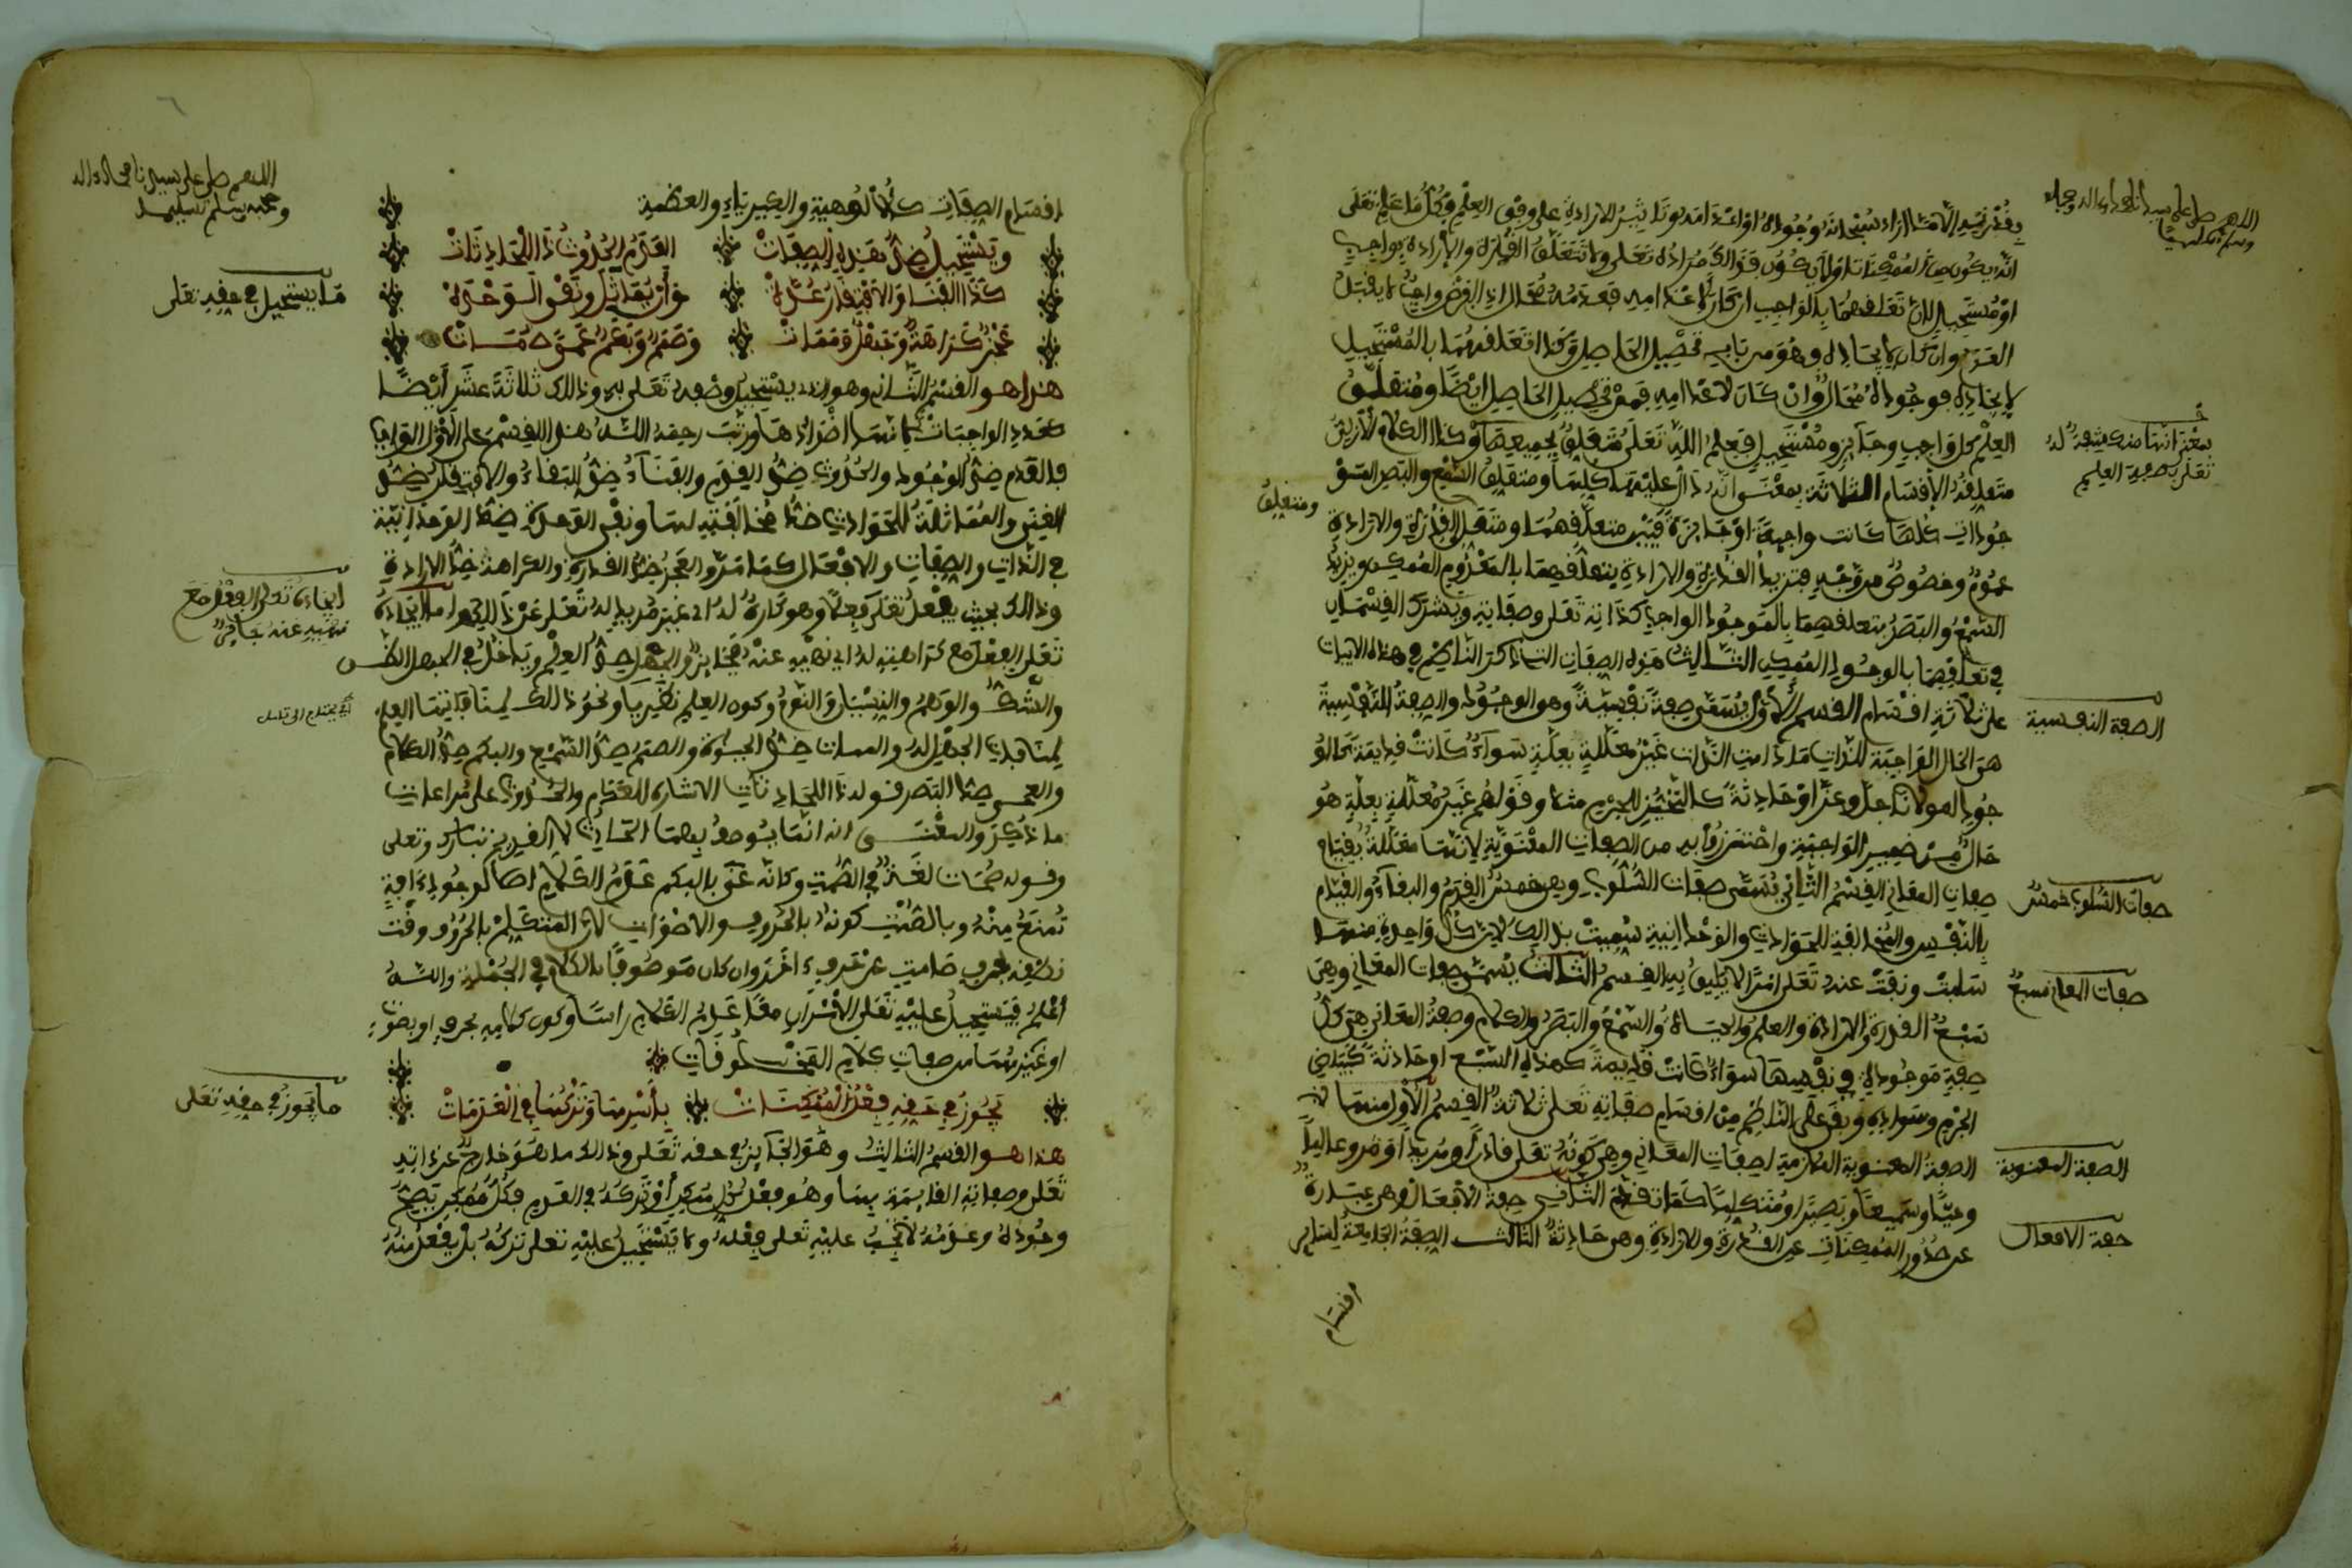 اللهم صل على سيدنا محمد وءاله وصحبه
وسلم تسليما
وفدرته إلا ما أراد سبحانه وجوده أو إعدامه وتاثير الإرادة على وفق العلم فكل ما علم تعلى
انه يكون من الممكنات أو لا يكون فذالك مراده تعلى ولا تتعلق الفدرة والإرادة بواجب
أو مستحيل لأن تعلفهما بالواجب ان كان لإعدامه فعدمه محال إذ الفرض واجب لا يقبل
العدم وان كان لإيجاده فهو من باب تحصيل الحاصل وكذا تعلفهما بالمستحيل
لإيجاده فوجوده محال وان كان لإعدامه فمن تحصيل الحاصل ايضا ومتعلق
العلم كل واجب وجايز ومستحيل فعلم الله تعلى متعلق بجميعها وكذا الكلام لأزلي
متعلفه الأفسام الثلاثة بمعنى انه دال عليها كلها ومتعلق السمع والبصر المو
جودات كلها كانت واجبة أو جايزة فبين متعلفهما ومتعلق الفدرة والارادة
عموم وخصوص من وجه فتزيد الفدرة والارادة بتعلفهما بالمعدوم الممكن ويزيد
السمع والبصر بتعلفهما بالموجود الواجب كذاته تعلى وصفاته ويشترك الفسمان
في تعلفهما بالوجود الممكن الثالث هذه الصفات التي ذكر الناظم في هذه الابيات
على ثلاثة افسام الفسم الأول يسمى صفة نفسية وهو الوجود والصفة النفسية
هي الحال الواجبة للذات ما دامت الذات غير معللة بعلة سواء كانت فديمة كالو
جود لمولانا جل وعز او حادثة كالتحيز للجرم مثلا وفولهم غير معللة بعلة هو
حال من ضمير الواجبة واحترزوا به من الصفات المعنوية لانها معللة بفيام
صفات المعاني الفسم الثاني يسمى صفات السلوب وهي خمس الفدم والبفاء والفيام
بالنفس والمخالفة للحوادث والوحدانية سميت بذالك لان كل واحدة منها
سلبت ونفت عنه تعلى امرا لا يليق به الفسم الثالث يسمى صفات المعاني وهي
سبع الفدرة والارادة والعلم والحياة والسمع والبصر والكلام وصفة المعاني هي كل
صفة موجودة في نفسها سواء كانت فديمة كهذه السبع او حادثة كبياض
الجرم وسواده وبفي على الناظم من افسام صفاته تعلى ثلاثة الفسم الأول منها
الصفة المعنوية الملازمة لصفات المعاني وهي كونه تعلى فادرا ومريدا وعالما
وحيا وسميعا وبصيرا ومتكلما كما تفدم الثاني صفة الأفعال وهي عبارة
عن صدور الممكنات عن الفدرة والارادة وهي حادثة الثالث الصفة الجامعة لساير
افسام
بمعنى انها منكشفة له
تعلى بصفة العلم
ومتعلق
الصفة النفسية
صفات السلوب خمس
صفات المعاني سبع
الصفة المعنوية
صفة الافعال
اللهم صل على سيدنا محمد وءاله
وصحبه وسلم تسليما
افسام الصفات كالألوهية والكبرياء والعظمة
ويستحيل ضد هذه الصفات العدم الحدوث ذا للحادثات
كذا الفنا والافتفار عده وأن يماثل ونفي الوحده
عجز كراهة وجهل وممات وصمم وبكم عمى صمات
هذا هو الفسم الثاني وهو الذي يستحيل وصفه تعلى به وذلك ثلاثة عشر أيضا
كعدد الواجبات لانها اضدادها ورتب رحمه الله هذا الفسم على الأول الواجب
فالعدم ضد الوجود والحدوث ضد الفدم والفناء ضد البفاء والافتفار ضد
الغنى والمماثلة للحوادث ضد المخالفة لها ونفي الوحدة ضد الوحدانية
في الذات والصفات والافعال كما مر والعجز ضد الفدرة والكراهة ضد الارادة
وذالك بحيث يفعل تعلى فعلا وهو كاره له اي غير مريد له تعلى عن ذالك اما ايجاده
تعلى الفعل مع كراهيته له اي نهيه عنه فجايز والجهل ضد العلم ويدخل في الجهل الظن
والشك والوهم والنسيان والنوم وكون العلم نظريا ونحو ذالك لمنافاتها العلم
لمنافاة الجهل له والممات ضد الحيوة والصمم ضد السمع والبكم ضد الكلام
والعمى ضد البصر فوله ذا للحادثات الاشارة للعدم والحدوث على مراعات
ما ذكر والمعنى انه انما يوصف بهما الحادث لا الفديم تبارك وتعلى
وفوله صمات لغة في الصمت وكانه عنى بالبكم عدم الكلام اصلا لوجود ءافة
تمنع منه وبالصمت كونه بالحروف والاصوات لان المتكلم بالحروف وفت
نطفه بحرف صامت عن حروف اخر وان كان موصوفا بالكلام في الجملة والله
أعلم فيستحيل عليه تعلى الأمران معا عدم الكلام راسا وكون كلامه بحرف او بصوت
او غيرهما من صفات كلام المخلوفات
يجوز في حفه فعل الممكنات بأسرها وتركها في العدمات
هذا هو الفسم الثالث وهو الجايز في حفه تعلى وذالك ما هو خارج عن ذاته
تعلى وصفاته الفايمة بها وهو فعل كل ممكن أو تركه في العدم فكل ممكن يصح
وجوده وعدمه لا يجب عليه تعلى فعله ولا يستحيل عليه تعلى تركه بل يفعل منه
ما يستحيل في حفه تعلى
ايجاده تعلى الفعل مع
نهيه عنه جايز
ما يجوز في حفه تعلى